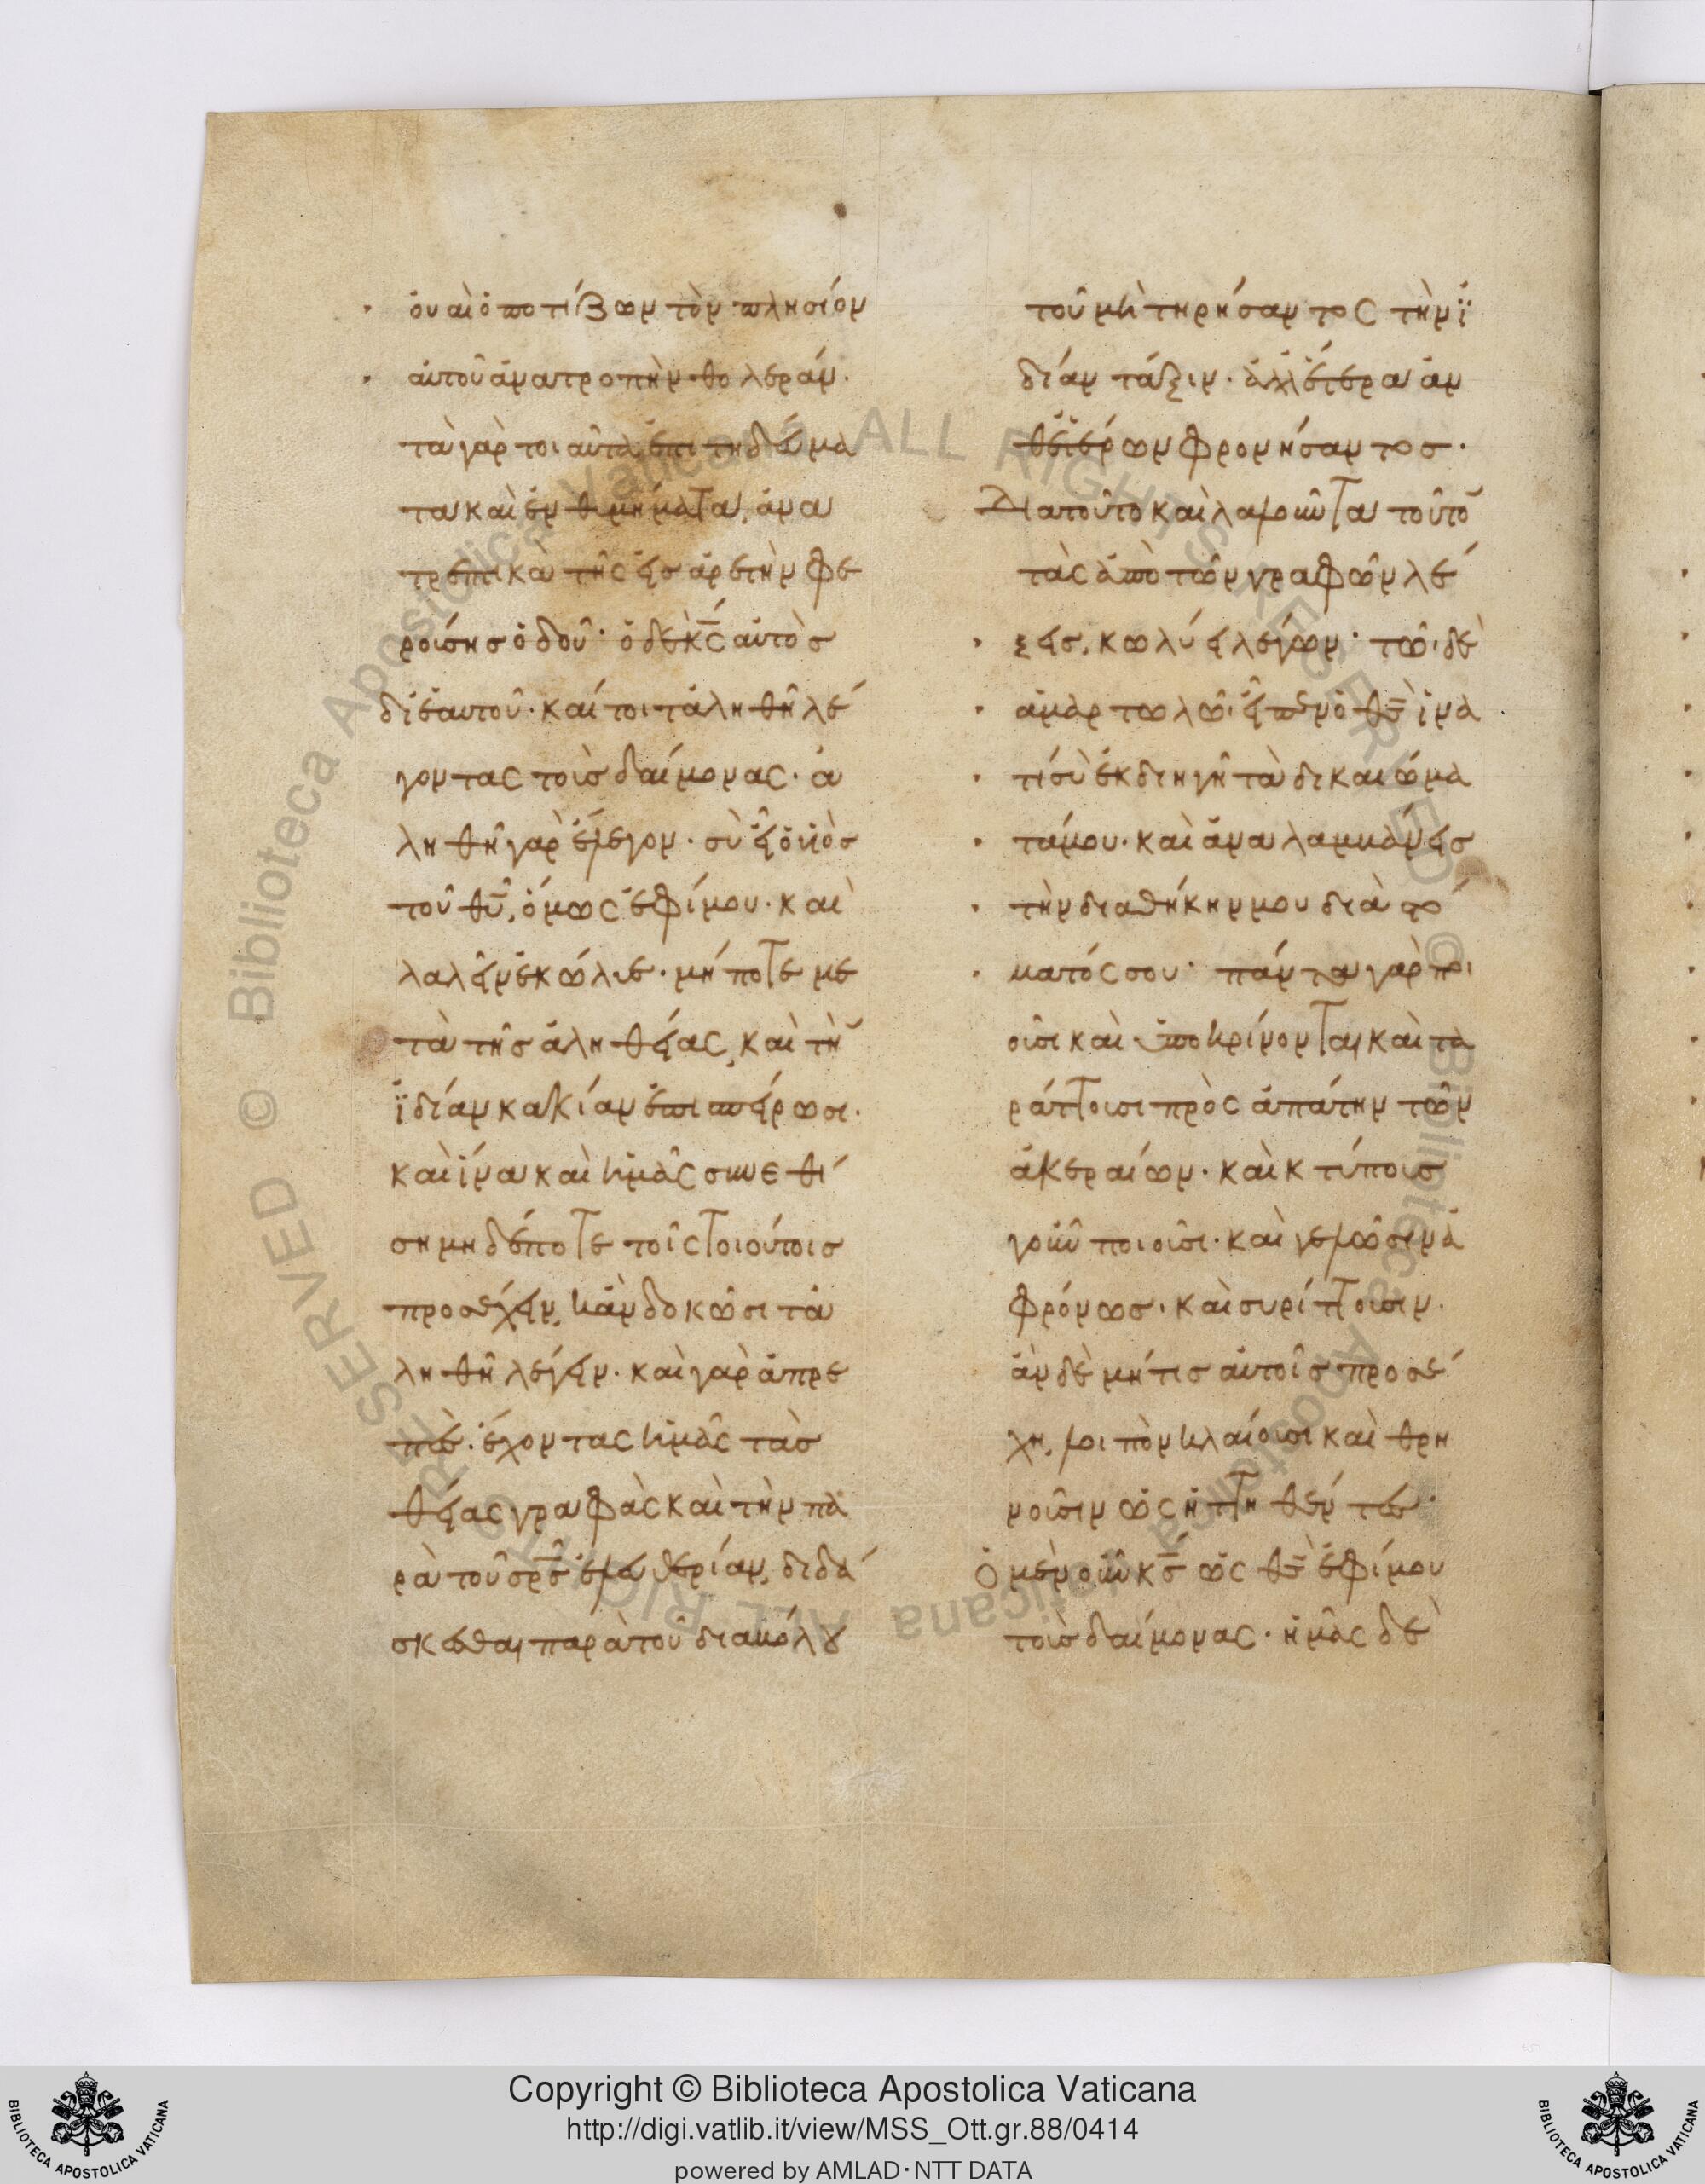 οὐαὶ ὁ ποτίζων τὸν πλησίον
αὐτοῦ ἀνατροπὴν θολεράν·
τὰ γὰρ τοιαῦτα ἐπιτηδεύμα
τα καὶ ἐνθυμήματα, ἀνα
τρεπτικὰ τῆς εἰς ἀρετὴν φε
ρούσης ὁδοῦ· ὁ δὲ κ̅ς̅ αὐτὸς
δι' ἑαυτοῦ· καί τοι τἀληθῆ λέ
γοντας τοὺς δαίμονας· ἀ
ληθῆ γὰρ ἔλεγον· σὺ εἶ ὁ υἱὸς
τοῦ θ̅υ̅, ὅμως ἐφίμου· καὶ
λαλεῖν ἐκώλυε· μήποτε με
τὰ τῆς ἀληθείας, καὶ τὴν
ϊδίαν κακίαν ἐπισπείρωσι·
καὶ ἵνα καὶ ἡμᾶς συνεθί
ση μηδέποτε τοῖς τοιούτοις
προσέχειν, κἂν δοκῶσι τἀ
ληθῆ λέγειν· καὶ γὰρ ἀπρε
πὲς· ἔχοντας ἡμᾶς τὰς
θείας γραφὰς καὶ τὴν πα
ρὰ τοῦ σ̅ρ̅ς̅ ἐλευθερίαν, διδά
σκεσθαι παρὰ τοῦ διαβόλου
τοῦ μὴ τηρήσαντος τὴν ϊ
δίαν τάξιν· ἀλλ' ἕτερα ἀν
θ' ἑτέρων φρονήσαντος·
Διατοῦτο καὶ λαλοῦντα τοῦτον
τὰς ἀπὸ τῶν γραφῶν λέ
ξεις, κωλύει λέγων· τῶ δὲ
ἁμαρτωλῶ εἶπεν ὁ θ̅ς̅ ἵνα
τί σὺ ἐκδιηγῆ τὰ δικαιώμα
τά μου· καὶ ἀναλαμβάνεις
τὴν διαθήκην μου διὰ στό
ματός σου· πάντα γὰρ ποι
οῦσι καὶ ὑποκρίνονται καὶ τα
ράττουσι πρὸς ἀπάτην τῶν
ἀκεραίων· καὶ κτύπους
γοῦν ποιοῦσι· καὶ γελῶσιν ἀ
φρόνως· καὶ συρίττουσιν·
ἂν δὲ μή τις αὐτοῖς προσέ
χη, λοιπὸν κλαίουσι καὶ θρη
νοῦσιν ὡς ἡττηθέντες·
Ὁ μὲν οὖν κ̅ς̅ ὡς θ̅ς̅ ἐφίμου
τοὺς δαίμονας· ἡμᾶς δὲ
Copyright © Biblioteca Apostolica Vaticana
http://digi.vatlib.it/view/MSS_Ott.gr.88/0414
powered by AMLAD·NTT DATA
BIBLIOTECA APOSTOLICA VATICANA
BIBLIOTECA APOSTOLICA VATICANA